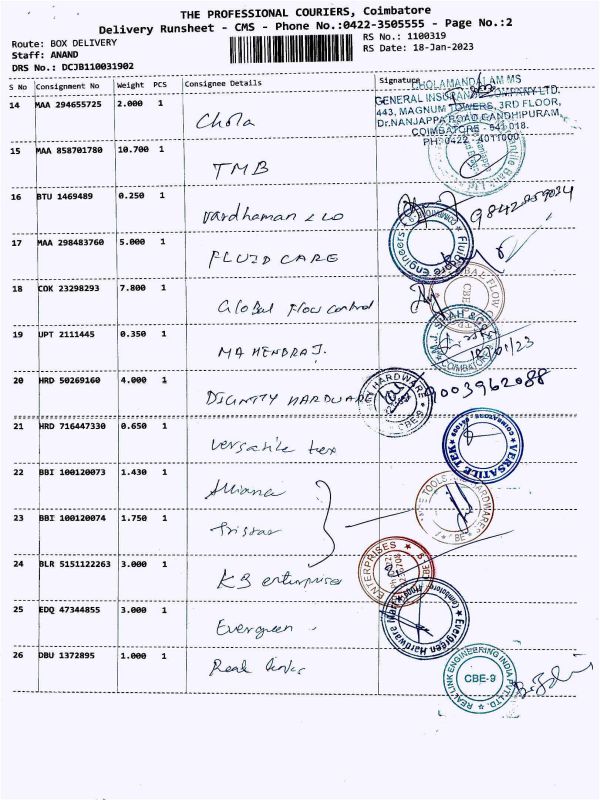 THE PROFESSIONAL COURIERS, Coimbatore
Delivery Runsheet - CMS - Phone No.:0422-3505555 - Page No.:2
Route: BOX DELIVERY
RS No.: 1100319
Staff: ANAND
RS Date: 18-Jan-2023
DRS No.: DCJB110031902
S No Consignment No Weight PCS Consignee Details Signature
14 MAA 294655725 2.000 1 Chola
CHOLAMANDALAM MS
GENERAL INSURANCE COMPANY LTD.
443, MAGNUM TOWERS, 3RD FLOOR,
Dr.NANJAPPA ROAD, GANDHIPURAM,
COIMBATORE - 641 018.
PH: 0422 - 4011000
15 MAA 858701780 10.700 1 TMB
16 BTU 1469489 0.250 1 Vardhaman & Co
17 MAA 298483760 5.000 1 FLUID CARE
Fluidcare Engineers
18 COK 23298293 7.800 1 Global Flow control
BAL FLOW
CBE
19 UPT 2111445 0.350 1 MAHENDRA J.
M.J. SHAH & CO
COIMBATORE
18/01/23
20 HRD 50269160 4.000 1 DIGNITY HARDWARE
HARDWARE
9003962088
21 HRD 716447330 0.650 1 Versatile tex
VERSATILE TEX
22 BBI 100120073 1.430 1
TOOLS
HARDWARES
23 BBI 100120074 1.750 1
24 BLR 5151122263 3.000 1 KB enterprises
ENTERPRISES
25 EDQ 47344855 3.000 1 Evergreen
Evergreen Hardware
26 DBU 1372895 1.000 1 Real links
REAL LINK ENGINEERING INDIA PVT. LTD.
CBE-9